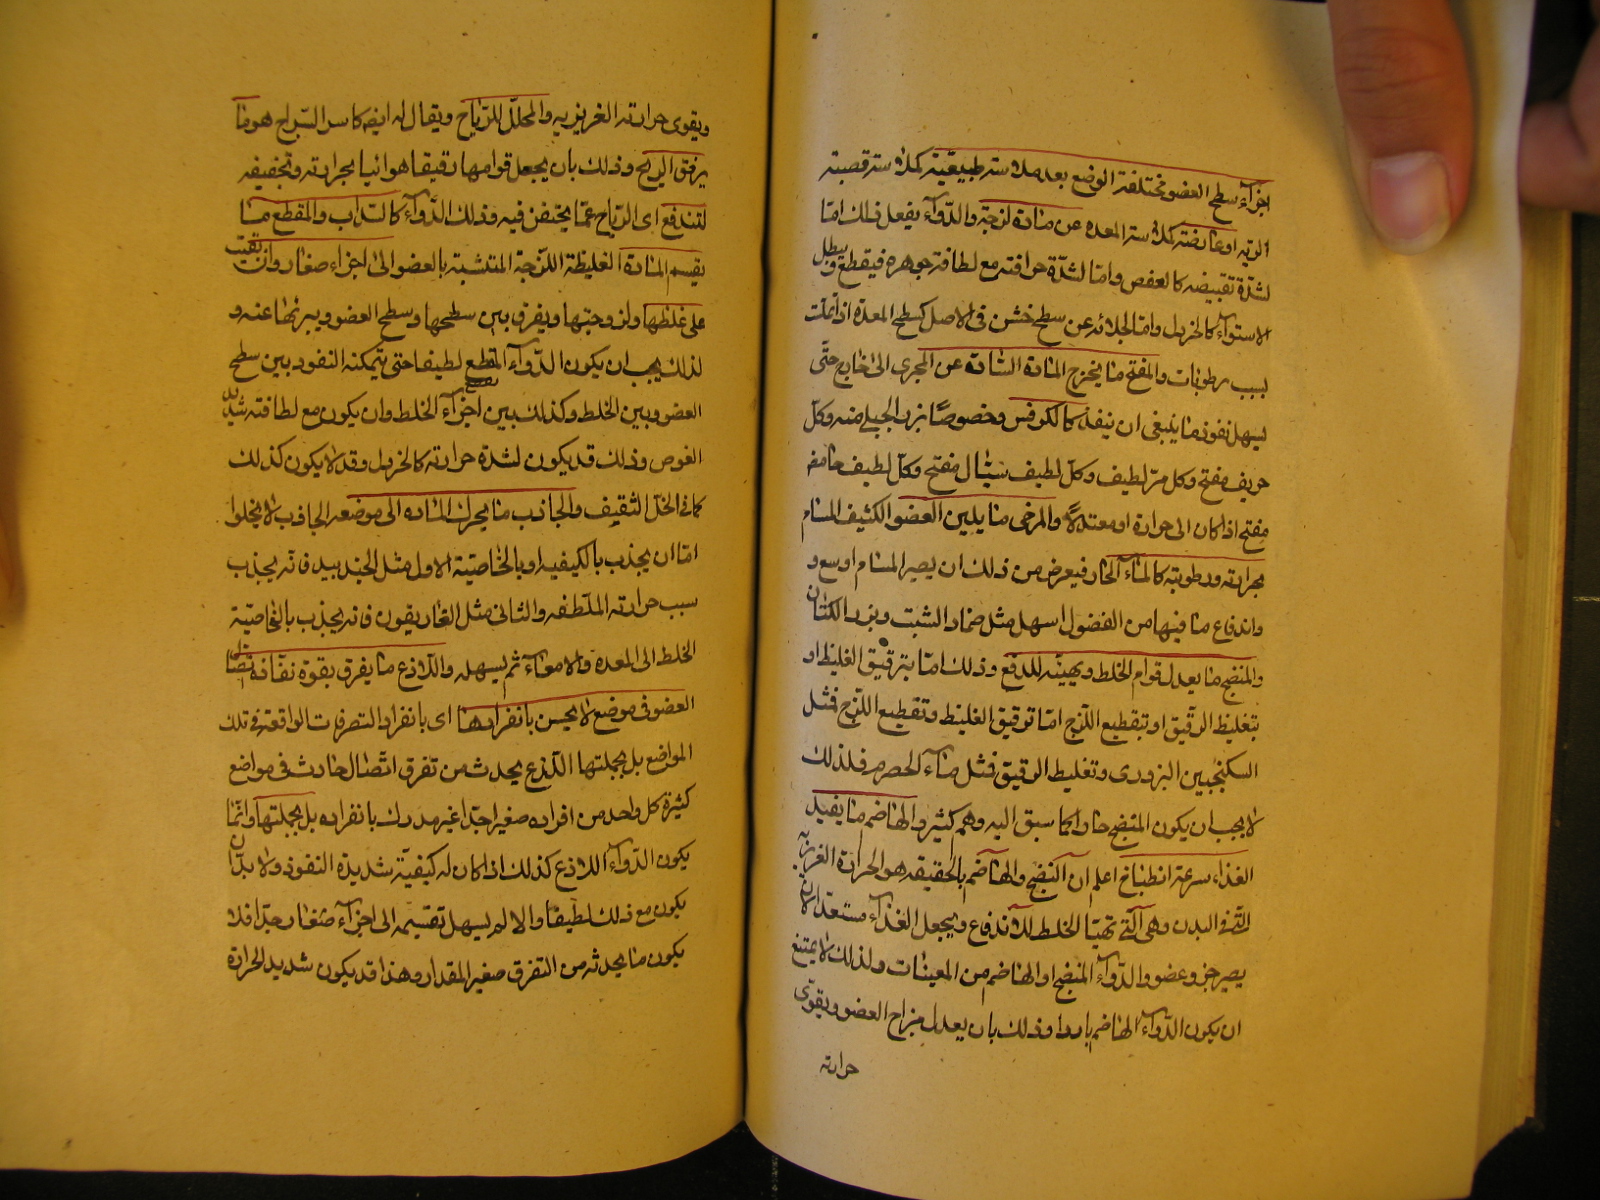 اجزاء سطح العضو مختلفة الوضع بعد ملاسته طبيعية كملاسته قصبة
الريه او عارضة كملاسة المعده عن مادة لزجة والدواء يفعل ذلك اما
لشدة تقبيضه كالعفص واما لشدة حرافته مع لطافة جوهره فيقطع ويبطل
الاستواء كالخردل واما لجلائه عن سطح خشن فى الاصل كسطح المعدة اذا تملت
بسبب رطوبات والمفتح ما يخرج المادة السادة عن المجرى الى خارج حتى
يسهل نفوذ ما ينبغى ان ينفذ كالكرفس وخصوصا بزر الجبلى منه وكل
حريف مفتح وكل مر لطيف وكل لطيف سيال مفتح وكل لطيف حامض
مفتح اذا كان الى حرارة او معتدلا والمرخى ما يلين العضو الكثيف المسام
بحرارته ورطوبته كالماء الحار فيعرض من ذلك ان يصير المسام اوسع و
واندفاع ما فيها من الفضول اسهل مثل ضماد الشبت وبزر الكتان
والمنضج ما يعدل قوام الخلط ويهيئه للدفع وذلك اما بترقيق الغليظ او
بتغليظ الرقيق او بتقطيع اللزج اما ترقيق الغليظ وتقطيع اللزج فمثل
السكنجبين البزورى وتغليظ الرقيق فمثل ماء الحصرم فلذلك
لا يجب ان يكون المنضج حارا كما سبق اليه وهم كثير والهاضم ما يفيد
الغذاء سرعة انطباخ اعلم ان النضج والهاضم بالحقيقه هو الحرارة الغريزيه
التى فى البدن وهى التى تهيئا الخلط للاندفاع ويجعل الغذاء مستعدا لان
يصير جزو عضو والدواء المنضج او الهاضم من المعينات ولذلك لا يمتنع
ان يكون الدواء الهاضم باردا وذلك بان يعدل مزاج العضو ويقوى
حرارته
ويقوى حرارته الغريزيه والمحلل للرياح ويقال له ايضا كاسر الرياح هو ما
يرقق الريح وذلك بان يجعل قوامها رقيقا هوائيا بحرارته وتجفيفه
لتندفع اى الرياح عما يختفن فيه وذلك الدواء كالسداب والمقطع ما
يقسم المادة الغليظة اللزجة المتشبثة بالعضو الى اجزاء صغار وان بقيت
على غلظها ولزوجتها ويفرق بين سطحها وسطح العضو ويبرئها عنه و
لذلك يجب ان يكون الدواء المقطع لطيفا حتى يمكنه النفوذ بين سطح
العضو وبين الخلط وكذلك بين بعض اجزاء الخلط وان يكون مع لطافته شديد
الغوص وذلك قد يكون لشدة حرارته كالخردل وقد لا يكون كذلك
كما فى الخل الثقيف والجاذب ما يحرك الماده الى موضعه الجاذب لا يخلوا
اما ان يجذب بالكيفيه او بالخاصية الاول مثل الجندبيد فانه يجذب
سبب حرارته الملطفه والثانى مثل الغاريقون فانه يجذب بالخاصية
الخلط الى المعده والامعاء ثم يسهله واللاذع ما يفرق بقوة نفاذة اتصال
العضو فى موضع لا يحسن بانفرادها اى بانفراد التصرفات الواقعة فى تلك
المواضع بل بجملتها اللذع يحدث من تفرق اتصال حادث فى مواضع
كثيرة كل واحد من افراده صغير جدا غير مدرك بانفراده بل بجملتها وانما
يكون الدواء اللاذع كذلك اذا كان له كيفية شديدة النفوذ ولا بد ان
يكون مع ذلك لطيفا والا لم يسهل تقسيمه الى اجزاء صغار جدا فلا
يكون ما يحدثه من التفرق صغير المقدار وهذا قد يكون شديد الحرارة